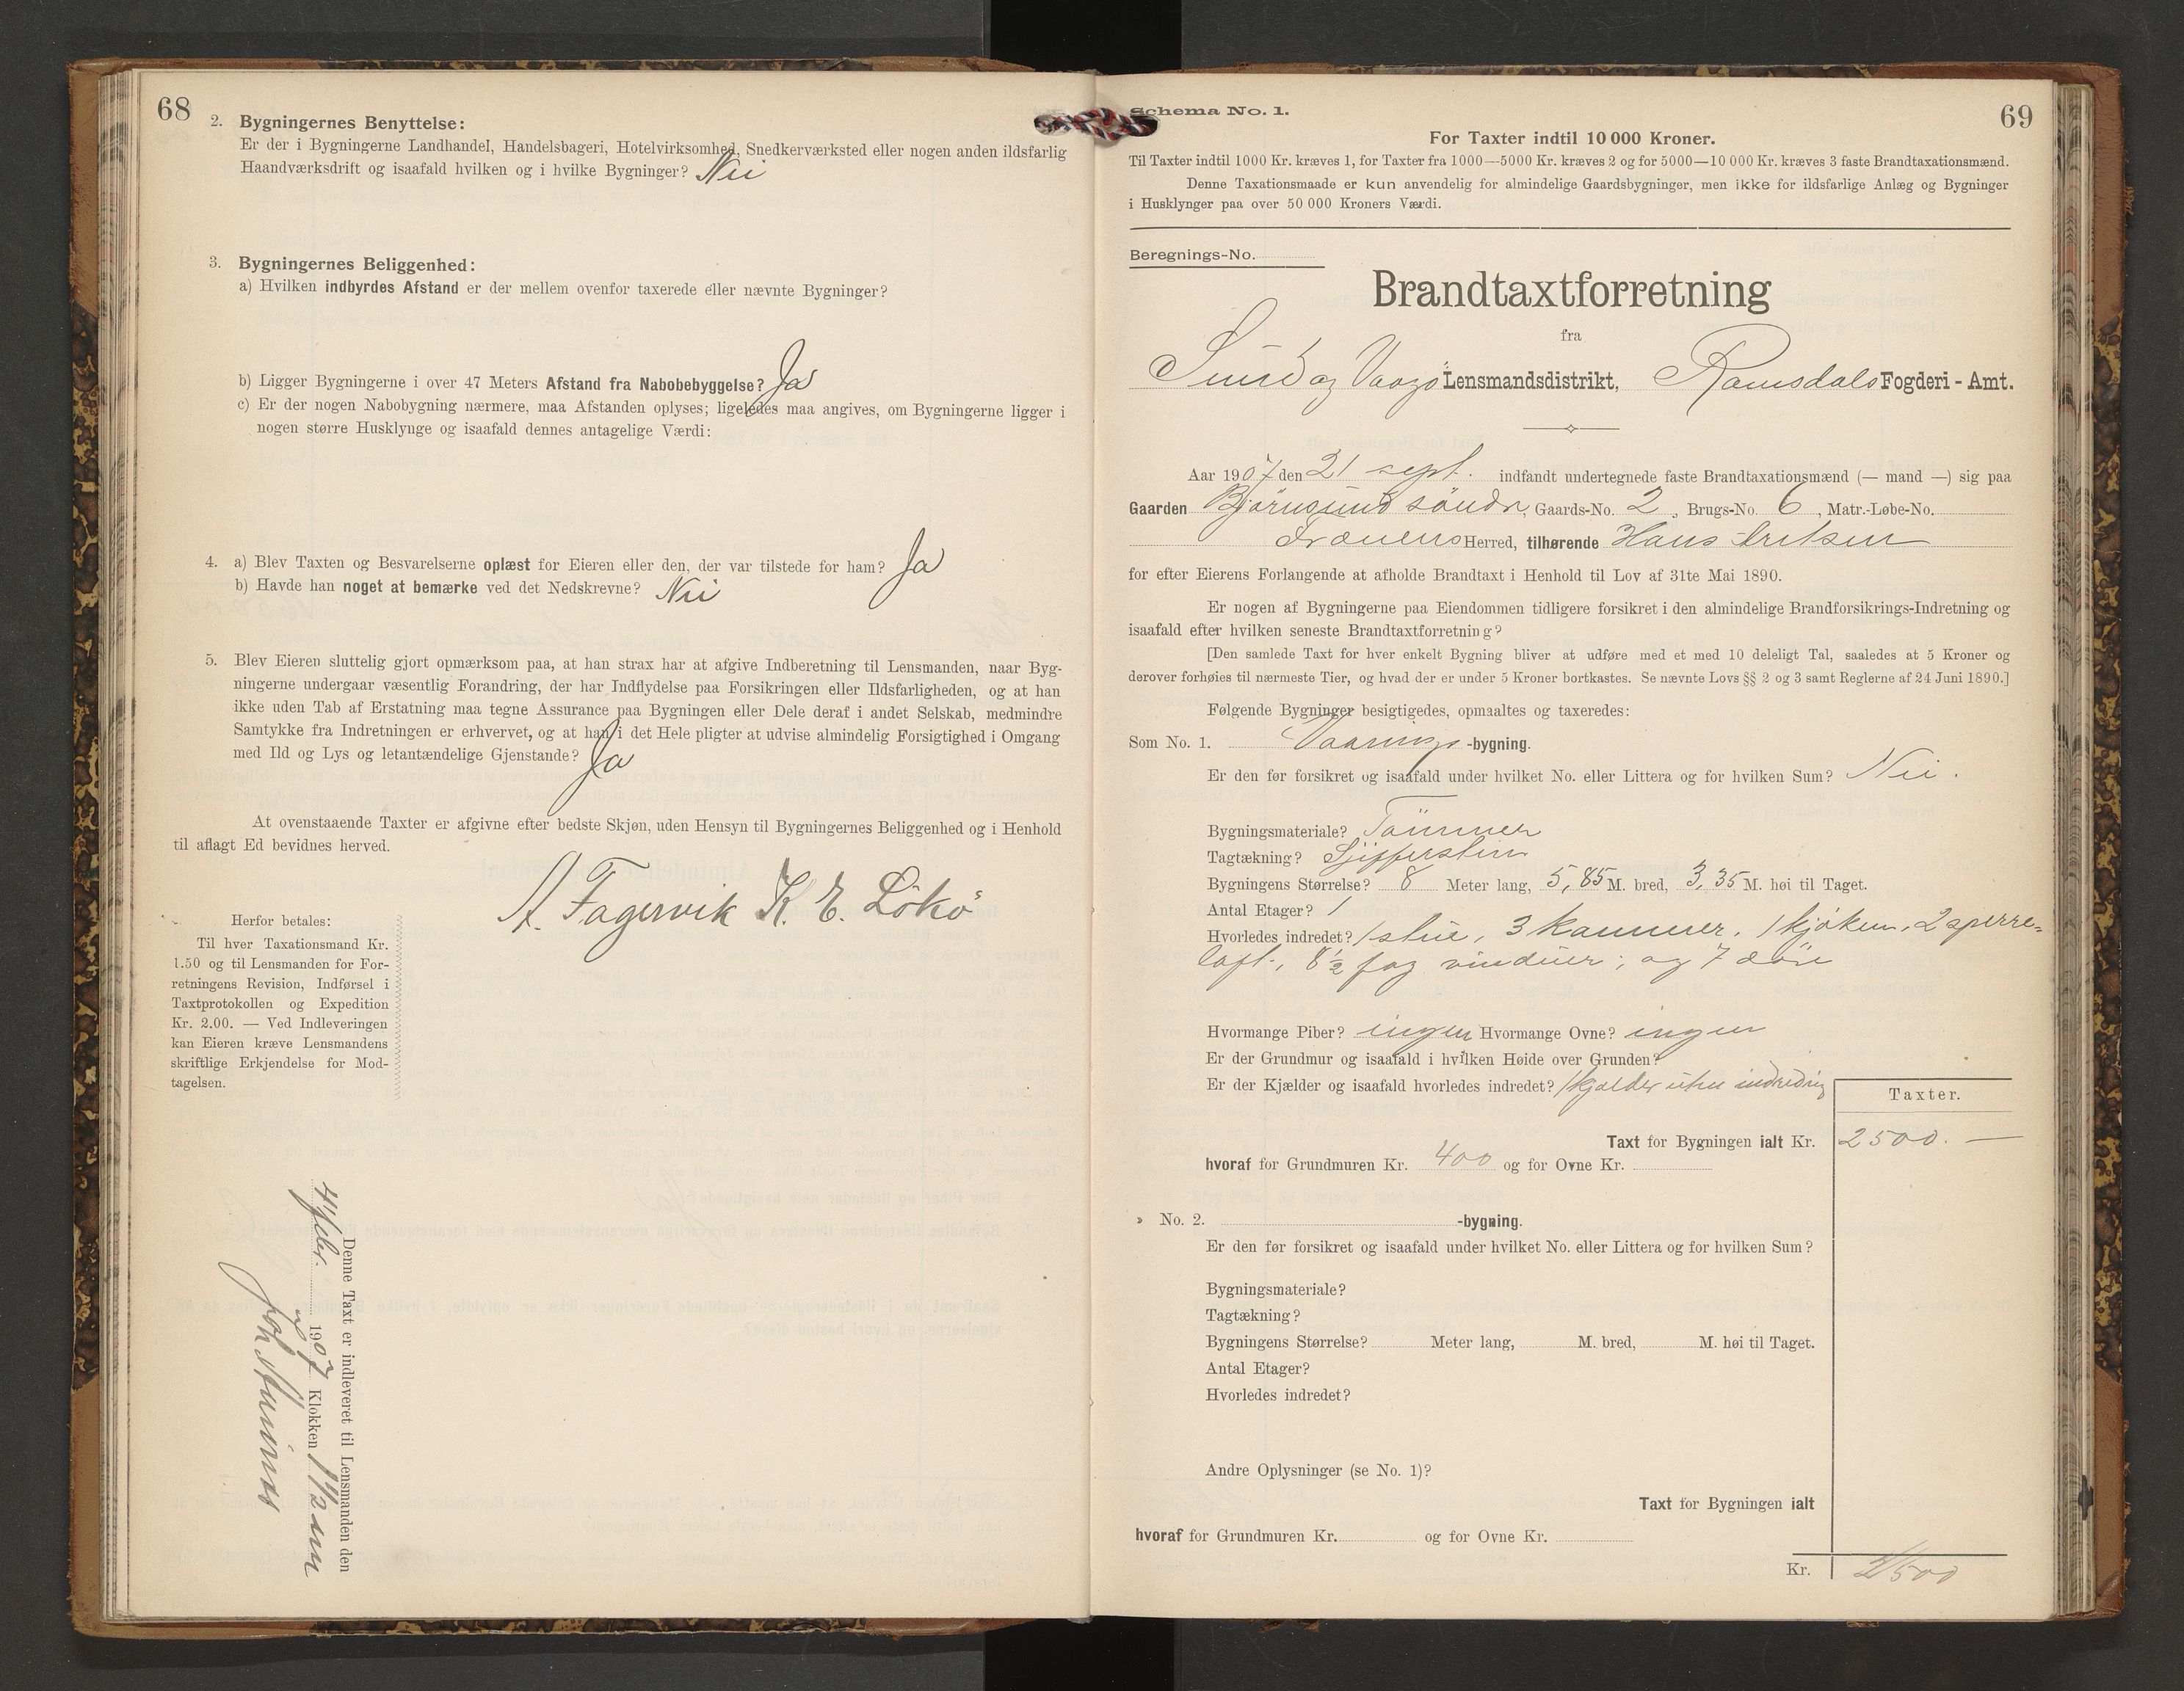 68
2. Bygningernes Benyttelse:
Er der i Bygningerne Landhandel, Handelsbageri, Hotelvirksomhed, Snedkerværksted eller nogen anden ildsfarlig
Haandværksdrift og isaafald hvilken og i hvilke Bygninger? Nei
3. Bygningernes Beliggenhed:
a) Hvilken indbyrdes Afstand er der mellem ovenfor taxerede eller nævnte Bygninger?
b) Ligger Bygningerne i over 47 Meters Afstand fra Nabobebyggelse? Ja
c) Er der nogen Nabobygning nærmere, maa Afstanden oplyses; ligeledes maa angives, om Bygningerne ligger i
nogen større Husklynge og isaafald dennes antagelige Værdi:
4. a) Blev Taxten og Besvarelserne oplæst for Eieren eller den, der var tilstede for ham? Ja
b) Havde han noget at bemærke ved det Nedskrevne? Nei
5. Blev Eieren sluttelig gjort opmærksom paa, at han strax har at afgive Indberetning til Lensmanden, naar Byg-
ningerne undergaar væsentlig Forandring, der har Indflydelse paa Forsikringen eller Ildsfarligheden, og at han
ikke uden Tab af Erstatning maa tegne Assurance paa Bygningen eller Dele deraf i andet Selskab, medmindre
Samtykke fra Indretningen er erhvervet, og at han i det Hele pligter at udvise almindelig Forsigtighed i Omgang
med Ild og Lys og letantændelige Gjenstande? Ja
At ovenstaaende Taxter er afgivne efter bedste Skjøn, uden Hensyn til Bygningernes Beliggenhed og i Henhold
til aflagt Ed bevidnes herved.
A. Fagervik K. E. Lökö
Herfor betales:
Til hver Taxationsmand Kr.
1.50 og til Lensmanden for For-
retningens Revision, Indførsel i
Taxtprotokollen og Expedition
Kr. 2.00. — Ved Indleveringen
kan Eieren kræve Lensmandens
skriftlige Erkjendelse for Mod-
tagelsen.
Denne Taxt er indleveret til Lensmanden den
4/ 1907 Klokken 1 1/2
Joh
Schema No. 1.
69
For Taxter indtil 10 000 Kroner.
Til Taxter indtil 1000 Kr. kræves 1, for Taxter fra 1000—5000 Kr. kræves 2 og for 5000—10 000 Kr. kræves 3 faste Brandtaxationsmænd.
Denne Taxationsmaade er kun anvendelig for almindelige Gaardsbygninger, men ikke for ildsfarlige Anlæg og Bygninger
i Husklynger paa over 50 000 Kroners Værdi.
Beregnings-No.
Brandtaxtforretning
fra
Sund og Vaagö Lensmandsdistrikt, Romsdals Fogderi - Amt.
Aar 1907 den 21 sept. indfandt undertegnede faste Brandtaxationsmænd (— mand —) sig paa
Gaarden Bjørnsund söndr, Gaards-No. 2, Brugs-No. 6, Matr.-Løbe-No.
Frænens Herred, tilhørende Hans
for efter Eierens Forlangende at afholde Brandtaxt i Henhold til Lov af 31te Mai 1890.
Er nogen af Bygningerne paa Eiendommen tidligere forsikret i den almindelige Brandforsikrings-Indretning og
isaafald efter hvilken seneste Brandtaxtforretning?
[Den samlede Taxt for hver enkelt Bygning bliver at udføre med et med 10 deleligt Tal, saaledes at 5 Kroner og
derover forhøies til nærmeste Tier, og hvad der er under 5 Kroner bortkastes. Se nævnte Lovs §§ 2 og 3 samt Reglerne af 24 Juni 1890.]
Følgende Bygninger besigtigedes, opmaaltes og taxeredes:
Som No. 1. Vaanings-bygning.
Er den før forsikret og isaafald under hvilket No. eller Littera og for hvilken Sum? Nei.
Bygningsmateriale? Tömmer
Tagtækning? Sjifferstein
Bygningens Størrelse? 8 Meter lang, 5,85 M. bred, 3,35 M. høi til Taget.
Antal Etager? 1
Hvorledes indredet? 1 stue, 3 kammer, 1 kjøken, 2 sperre-
loft, 8 1/2 fag vinduer; og 7 döre
Hvormange Piber? ingen Hvormange Ovne? ingen
Er der Grundmur og isaafald i hvilken Høide over Grunden?
Er der Kjælder og isaafald hvorledes indredet? 1 kjælder uten indredning
Taxter.
Taxt for Bygningen ialt Kr. 2500. —
hvoraf for Grundmuren Kr. 400 og for Ovne Kr.
» No. 2. -bygning.
Er den før forsikret og isaafald under hvilket No. eller Littera og for hvilken Sum?
Bygningsmateriale?
Tagtækning?
Bygningens Størrelse? Meter lang, M. bred, M. høi til Taget.
Antal Etager?
Hvorledes indredet?
Andre Oplysninger (se No. 1)?
Taxt for Bygningen ialt
hvoraf for Grundmuren Kr. og for Ovne Kr.
Kr. 2500